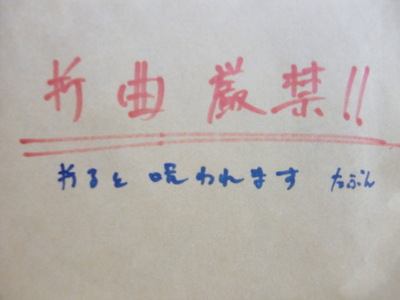 折曲厳禁!!
折ると呪われます たぶん